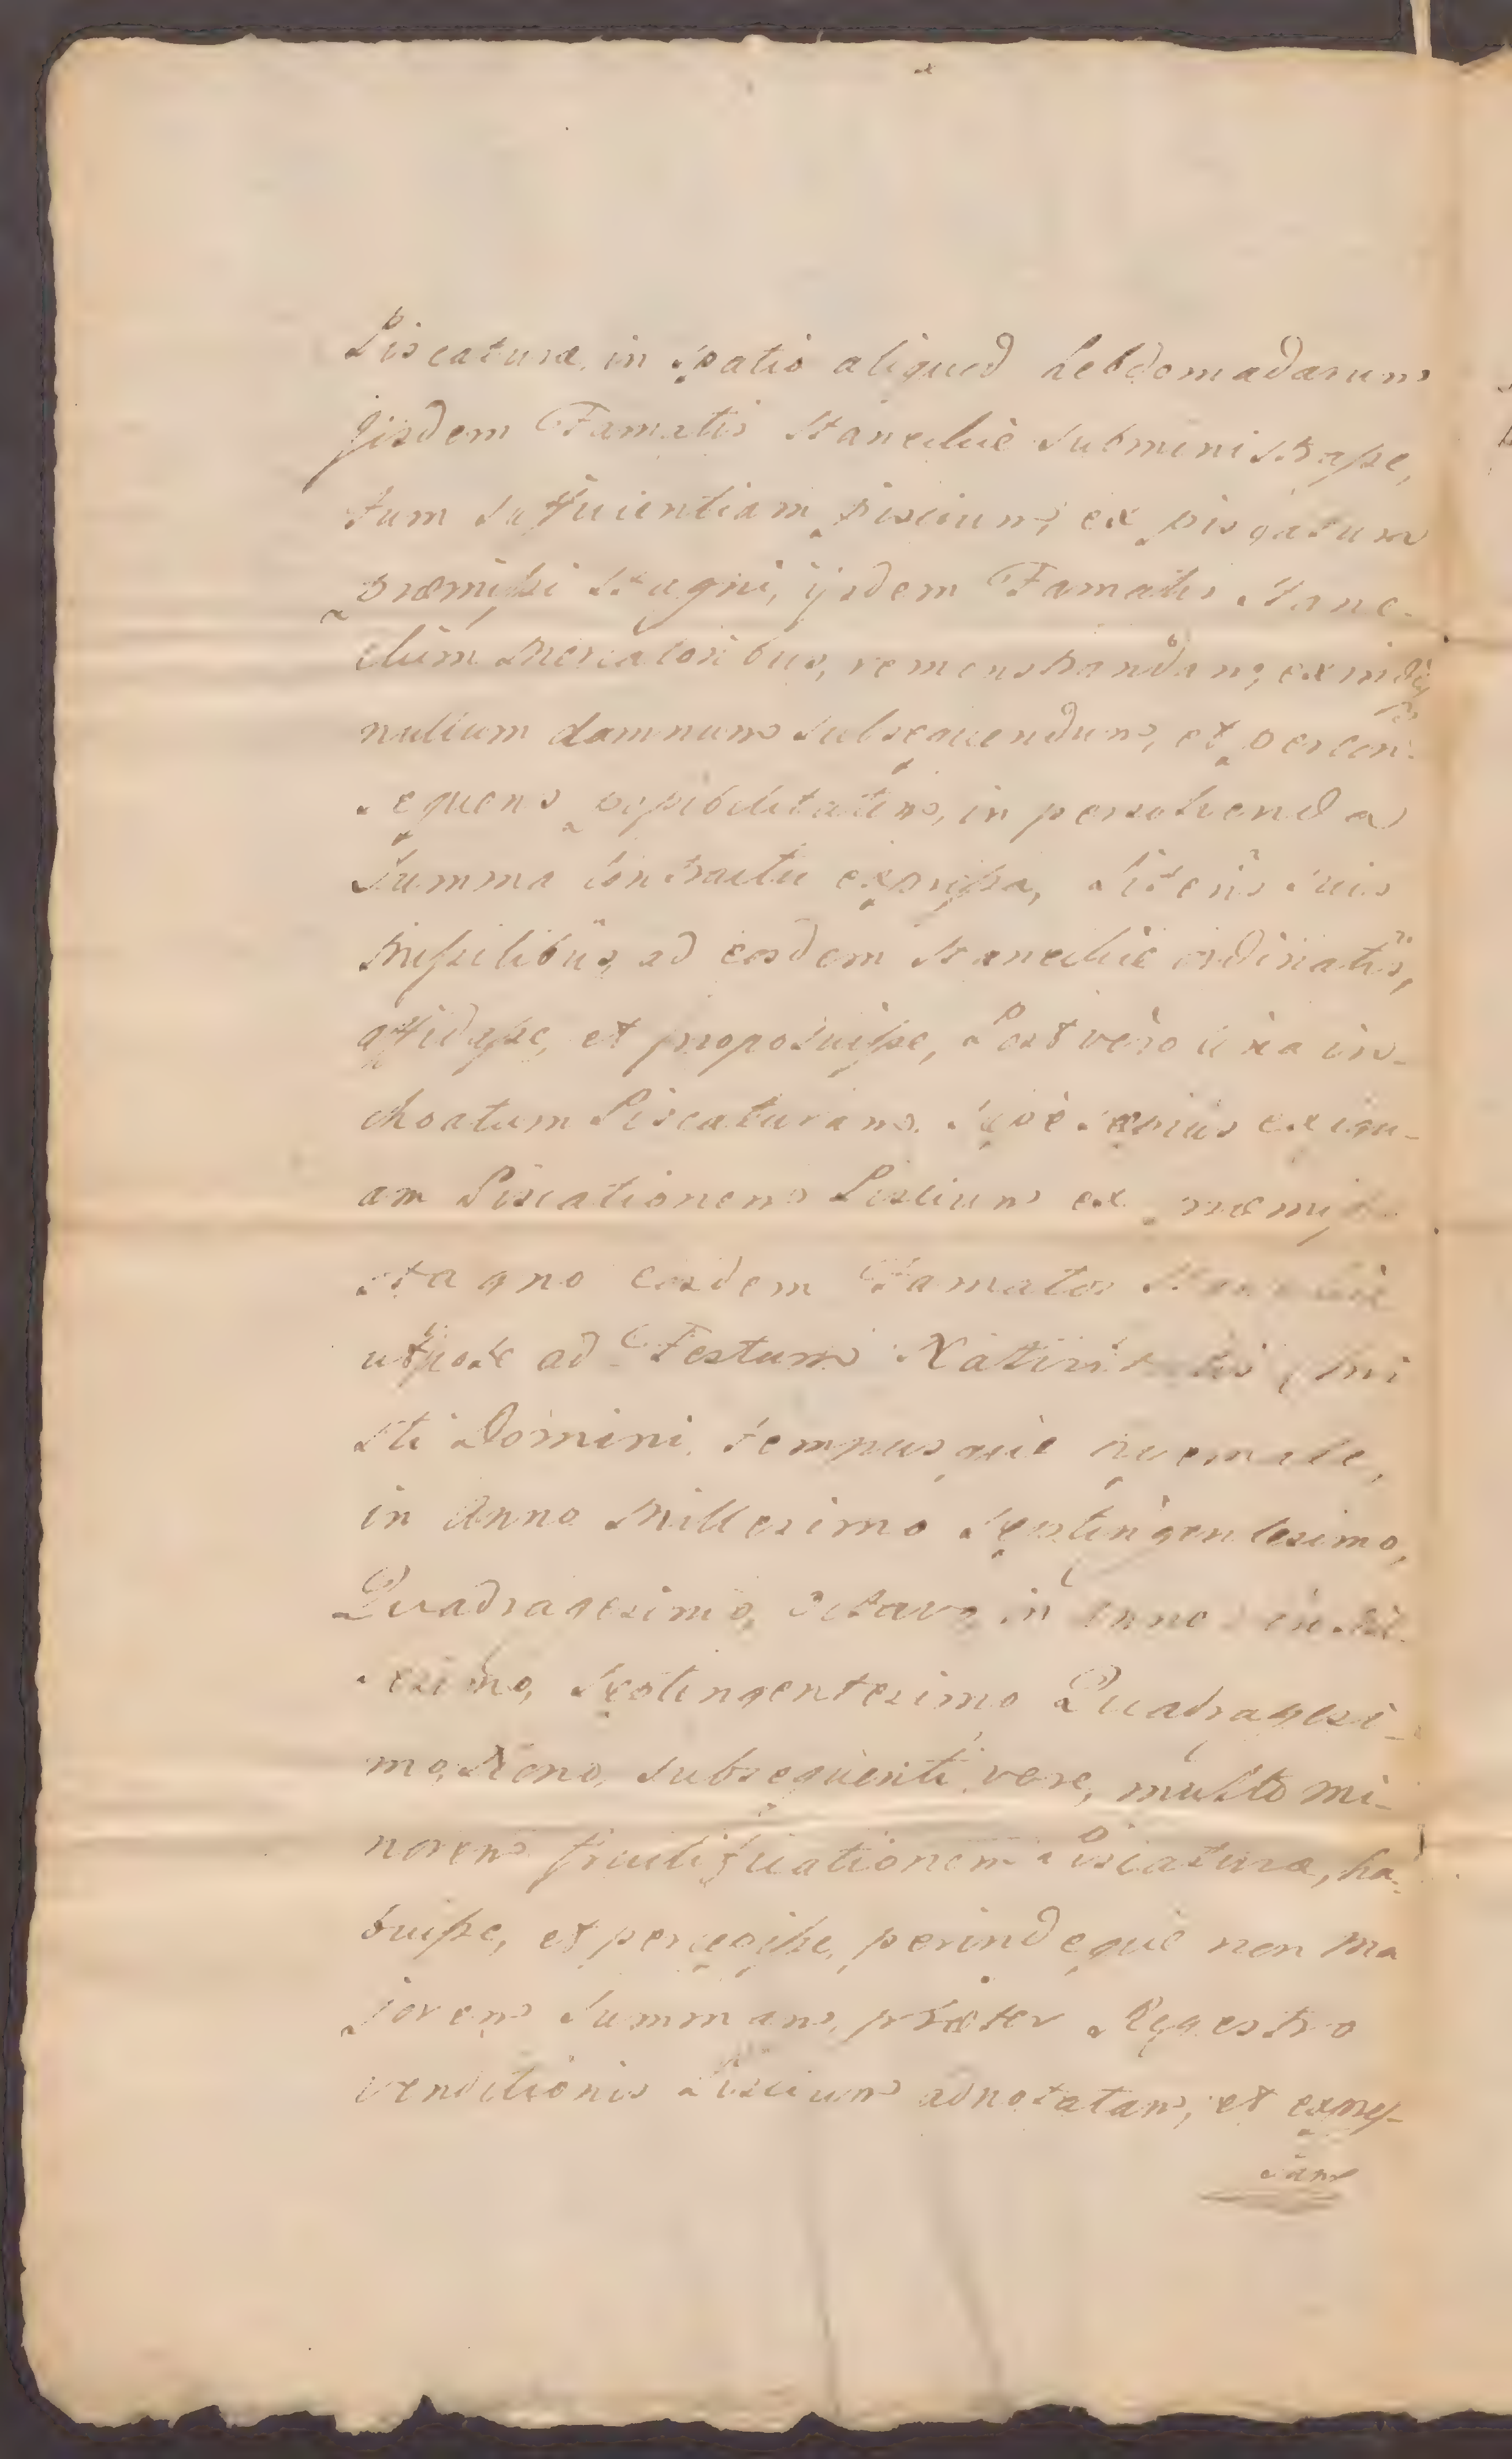 Piscaturæ, in spatio aliquod hebdomadarum
Jisdem Famatis Staneckie subministrasse,
tum sufficientiam Piscium, ex piscatura
præmissi stagni, ijsdem Famatis Stane-
ckim Mercatoribus, remonstrandam, exindeq
nullum damnum subsequendum, et percon-
sequens possibilitatem, in persolvenda
Summa Contractu expressa, Literis suis
Missilibus, ad eosdem Staneckie ordinatis,
affidasse, et proposuisse, Post vero in-
choatam Piscaturam. sæpe sæpius exigu-
am Piscationem Piscium ex præmisso
stagno eosdem Famatos Staneckie
utpote ad Festum Nativitatis Chri
sti Domini, tempusque hyemale,
in Anno Millesimo Septingentesimo,
Quadragesimo, octavo, in Anno Mille-
simo, Septingentesimo Quadragesi-
mo, Nono, subsequenti vere, multo mi-
norem fructificationem Piscaturæ, ha-
buisse, et peregisse, perindeque non ma
jorem Summam, præter Regestro
venditionis Piscium adnotatam, et expres-
sam